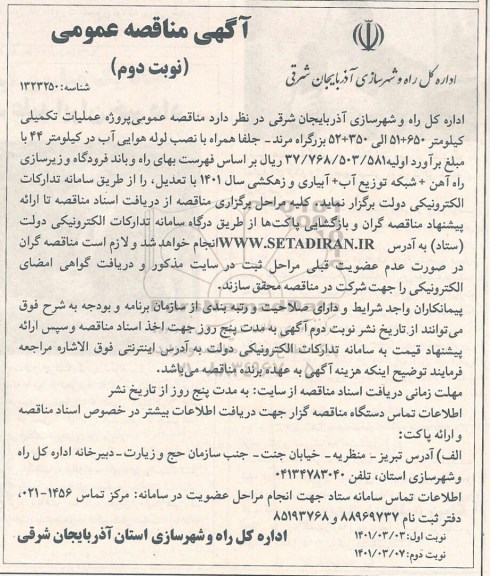 آگهی مناقصه عمومی
(نوبت دوم)
شناسه: ۱۳۲۳۲۵۰
اداره کل راه و شهرسازی آذربایجان شرقی
اداره کل راه و شهرسازی آذربایجان شرقی در نظر دارد مناقصه عمومی‌پروژه عملیات تکمیلی
کیلومتر ۶۵۰+۵۱ الی ۳۵۰+۵۲ بزرگراه مرند- جلفا همراه با نصب لوله هوایی آب در کیلومتر ۴۴ با
مبلغ برآورد اولیه۳۷/۷۶۸/۵۰۳/۵۸۱ ریال بر اساس فهرست بهای راه و باند فرودگاه و زیرسازی
راه آهن + شبکه توزیع آب+ آبیاری و زهکشی سال ۱۴۰۱ با تعدیل، را از طریق سامانه تدارکات
الکترونیکی دولت برگزار نماید. کلیه مراحل برگزاری مناقصه از دریافت اسناد مناقصه تا ارائه
پیشنهاد مناقصه گران و بازگشایی پاکت‌ها از طریق درگاه سامانه تدارکات الکترونیکی دولت
(ستاد) به آدرس WWW.SETADIRAN.IRانجام خواهد شد و لازم است مناقصه گران
در صورت عدم عضویت قبلی مراحل ثبت در سایت مذکور و دریافت گواهی امضای
الکترونیکی را جهت شرکت در مناقصه محقق سازند.
پیمانکاران واجد شرایط و دارای صلاحیت و رتبه بندی از سازمان برنامه و بودجه به شرح فوق
می‌توانند از تاریخ نشر نوبت دوم آگهی به مدت پنج روز جهت اخذ اسناد مناقصه وسپس ارائه
پیشنهاد قیمت به سامانه تدارکات الکترونیکی دولت به آدرس اینترنتی فوق الاشاره مراجعه
فرمایند توضیح اینکه هزینه آگهی به عهده برنده مناقصه می‌باشد.
مهلت زمانی دریافت اسناد مناقصه از سایت: به مدت پنج روز از تاریخ نشر
اطلاعات تماس دستگاه مناقصه گزار جهت دریافت اطلاعات بیشتر در خصوص اسناد مناقصه
و ارائه پاکت:
الف) آدرس تبریز- منظریه- خیابان جنت- جنب سازمان حج و زیارت-دبیرخانه اداره کل راه
وشهرسازی استان، تلفن ۰۴۱۳۴۷۸۳۰۴۰
اطلاعات تماس سامانه ستاد جهت انجام مراحل عضویت در سامانه: مرکز تماس ۱۴۵۶-۰۲۱،
دفتر ثبت نام ۸۸۹۶۹۷۳۷ و ۸۵۱۹۳۷۶۸
نوبت اول: ۱۴۰۱/۰۳/۰۳
نوبت دوم: ۱۴۰۱/۰۳/۰۷
اداره کل راه و شهرسازی استان آذربایجان شرقی